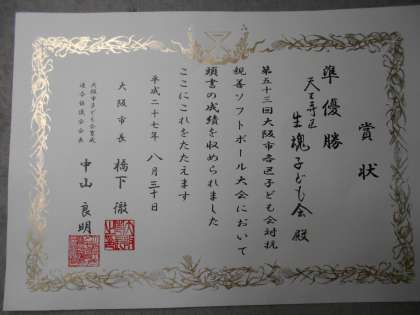 賞状
準優勝
天王寺区
生魂子ども会殿
第五十三回大阪市各区子ども会対抗
親善ソフトボール大会において
頭書の成績を収められました
ここにこれをたたえます
平成二十七年八月三十日
大阪市長 橋下徹
大阪市子ども会育成
連合協議会会長 中山良明